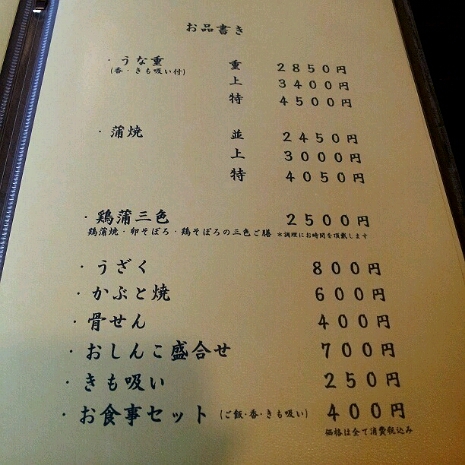 お品書き
・うな重 重 2850円
(香・きも吸い付) 上 3400円
特 4500円
・蒲焼 並 2450円
上 3000円
特 4050円
・鶏蒲三色 2500円
鶏蒲焼・卵そぼろ・鶏そぼろの三色ご膳 *調理にお時間を頂戴します
・うざく 800円
・かぶと焼 600円
・骨せん 400円
・おしんこ盛合せ 700円
・きも吸い 250円
・お食事セット (ご飯・香・きも吸い) 400円
価格は全て消費税込み